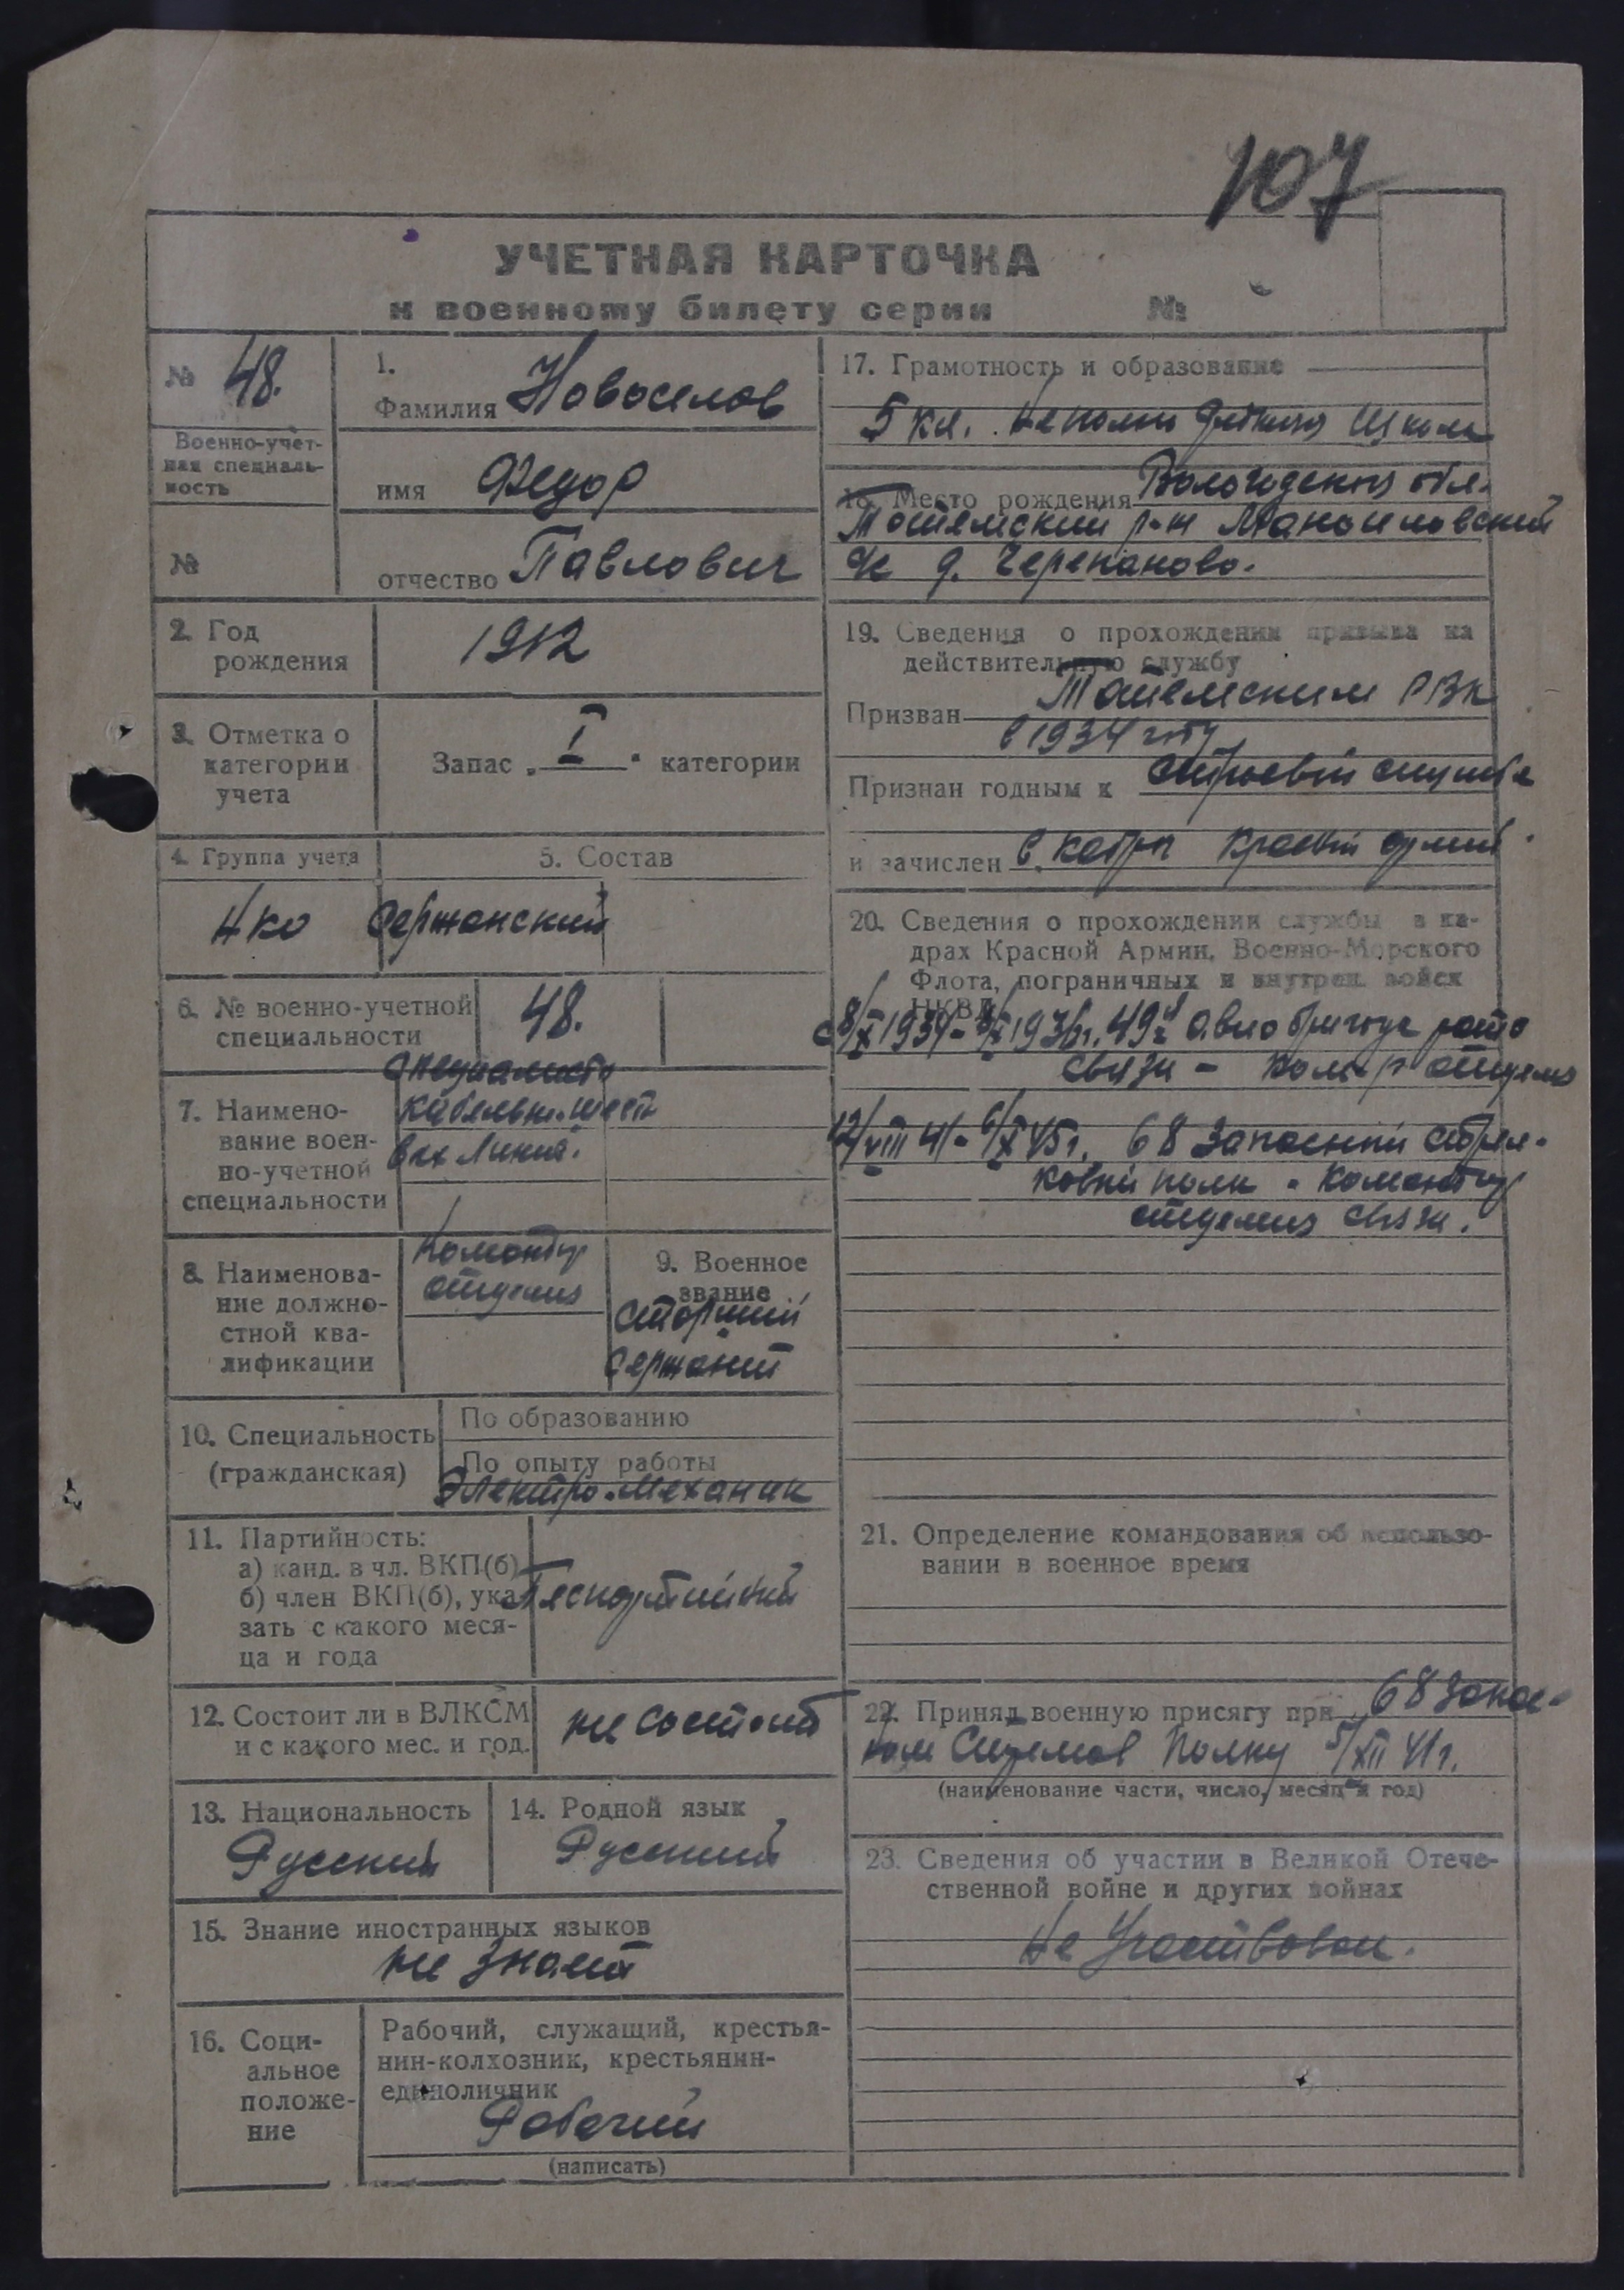 107
УЧЕТНАЯ КАРТОЧКА
к военному билету серии №
№ 48.
Военно-учет-
ная специаль-
ность
№
1.
Фамилия Новоселов
имя Федор
отчество Павлович
2. Год
рождения
1912
3. Отметка о
категории
учета
Запас „ I " категории
4. Группа учета
НКО
5. Состав
Сержанский
6. № военно-учетной
специальности
48.
7. Наимено-
вание воен-
но-учетной
специальности
Специалисты
кабельн. шест
вых линий.
8. Наименова-
ние должно-
стной ква-
лификации
Командир
отделения
9. Военное
звание
Старший
Сержант
10. Специальность
(гражданская)
По образованию
По опыту работы
Электро-механик
11. Партийность:
а) канд. в чл. ВКП(б)
б) член ВКП(б), ука-
зать с какого меся-
ца и года
Беспартийный
12. Состоит ли в ВЛКСМ
и с какого мес. и год.
не состоит
13. Национальность
Русский
14. Родной язык
Русский
15. Знание иностранных языков
не знает
16. Соци-
альное
положе-
ние
Рабочий, служащий, крестья-
нин-колхозник, крестьянин-
единоличник
Рабочий
(написать)
17. Грамотность и образование
5 кл. Неполн Школа
18. Место рождения Вологодская обл.
Тотемский р-н Маноиловский
с/с д. Черепаново.
19. Сведения о прохождении призыва на
действительную службу
Призван Тотемским РВК
в 1934 году
Признан годным к строевой службе
и зачислен в кадры Красной армии
20. Сведения о прохождении службы в ка-
драх Красной Армии, Военно-Морского
Флота, пограничных и внутрен. войск
НКВД
с 8/X 1934 - 1936 г. 49я авиабригада рота
связи - ком-р отделен
12/VIII 41 - 6/X 45 г. 68 запасный стрел-
ковый полк - командир
отделения связи.
21. Определение командования об использо-
вании в военное время
22. Принял военную присягу при 68 запас-
ном Стрелков Полку 5/XII 41 г.
(наименование части, число, месяц и год)
23. Сведения об участии в Великой Отече-
ственной войне и других войнах
Не Участвовал.